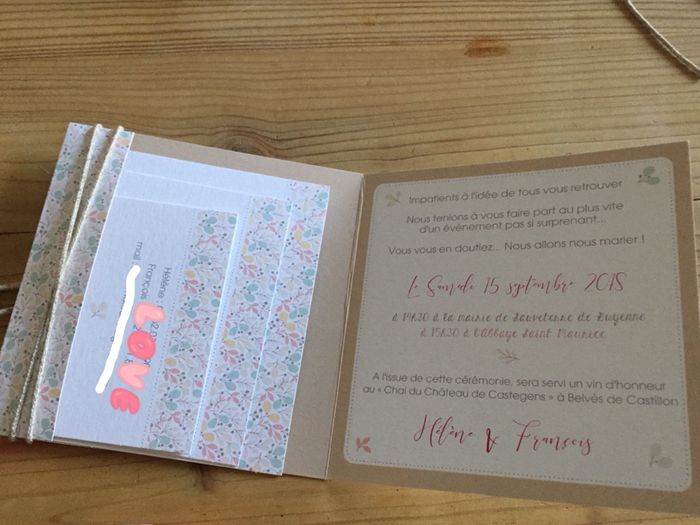 Impatients à l'idée de tous vous retrouver
Nous tenions à vous faire part au plus vite
d'un événement pas si surprenant...
Vous vous en doutiez... Nous allons nous marier !
Le Samedi 15 septembre 2018
à 14h30 à la mairie de Sauveterre de Guyenne
à 15h30 à l'abbaye Saint Maurice
A l'issue de cette cérémonie, sera servi un vin d'honneur
au « Chai du Château de Castegens » à Belvès de Castillon
Hélène & François
Hélène
François
mail
LOVE